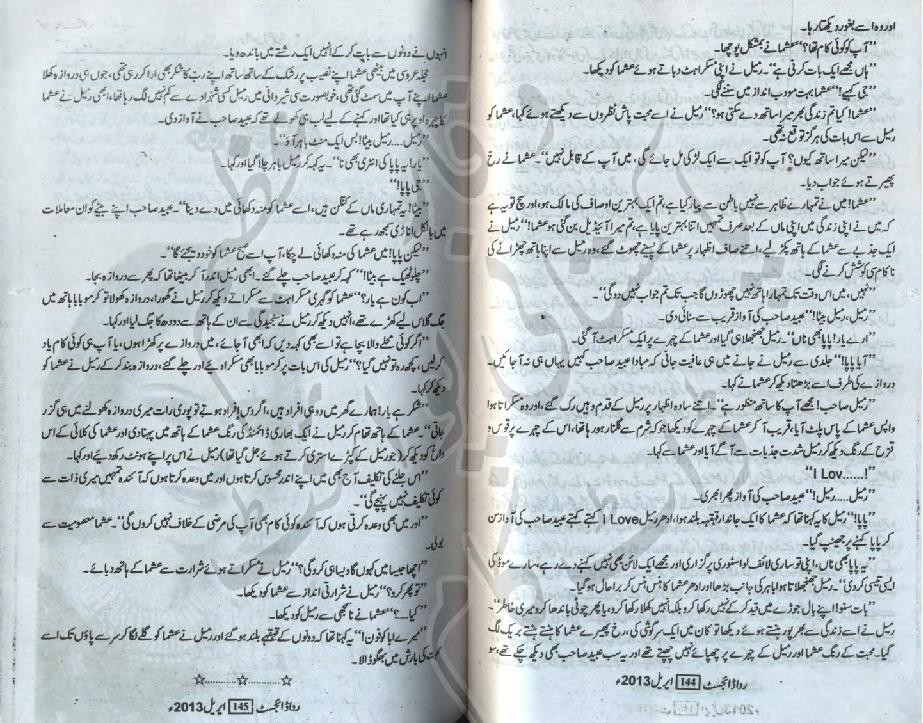 اور وہ اسے بغور دیکھتا رہا۔
”آپ کو کوئی کام تھا؟“ عشما نے بمشکل پوچھا۔
”ہاں مجھے ایک بات کرنی ہے“۔ رمیل نے اپنی مسکراہٹ دباتے ہوئے عشما کو دیکھا۔
”جی کہیے!“ عشما بہت مودب انداز میں سننے لگی۔
”عشما! کیا تم زندگی بھر میرا ساتھ دے سکتی ہو؟“ رمیل نے اسے محبت پاش نظروں سے دیکھتے ہوئے کہا، عشما کو
رمیل سے اس بات کی ہرگز توقع نہ تھی۔
”لیکن میرا ساتھ کیوں؟ آپ کو تو ایک سے ایک لڑکی مل جائے گی، میں آپ کے قابل نہیں“۔ عشما نے رخ
پھیرتے ہوئے جواب دیا۔
”عشما! میں نے تمہارے ظاہر سے نہیں باطن سے پیار کیا ہے، تم ایک بہترین اوصاف کی مالک ہو، اور سچ تو یہ ہے
کہ میں نے اپنی زندگی میں اپنی ماں کے بعد صرف تمہیں اتنا بہترین پایا ہے، تم میرا آئیڈیل بن گئی ہو عشما!“ رمیل نے
ایک جذبے سے عشما کے ہاتھ پکڑ لیے، اتنے صاف اظہار پر عشما کے پسینے چھوٹ گئے، وہ رمیل سے اپنا ہاتھ چھڑانے کی
ناکام سی کوشش کرنے لگی۔
”نہیں، میں اس وقت تک تمہارا ہاتھ نہیں چھوڑوں گا جب تک تم جواب نہیں دو گی“۔
”رمیل، رمیل بیٹا!“ عبید صاحب کی آواز قریب سے سنائی دی۔
”ارے یار! پاپا بھی ناں“۔ رمیل جھنجھلا ہی گیا اور عشما کے چہرے پر ایک مسکراہٹ آ گئی۔
”آیا پاپا!“ جلدی سے رمیل نے جانے میں ہی عافیت جانی کہ مبادا عبید صاحب کہیں یہاں ہی نہ آ جائیں۔
دروازے کی طرف اسے بڑھتا دیکھ کر عشما نے کہا۔
”رمیل صاحب! مجھے آپ کا ساتھ منظور ہے“۔ اتنے سادہ اظہار پر رمیل کے قدم وہیں رک گئے، اور وہ مسکراتا ہوا
واپس عشما کے پاس پلٹ آیا، قریب آ کر عشما کے چہرے کو دیکھا جو کہ شرم سے گلنار ہو رہا تھا، اس کے چہرے پر قوس و
قزح کے رنگ دیکھ کر رمیل شدت جذبات سے آگے آیا اور عشما سے کہا۔
”I Lov......!“
”رمیل.... رمیل!“ عبید صاحب کی آواز پھر ابھری۔
”پاپا!“ رمیل کا یہ کہنا تھا کہ عشما کا ایک جاندار قہقہہ بلند ہوا، ادھر رمیل I Love کہتے کہتے عبید صاحب کی آواز سن
کر پاپا کہنے پر جھینپ گیا۔
”یہ پاپا بھی ناں، اپنی تو ساری لائف لو اسٹوری پر گزاری اور مجھے ایک لائن بھی نہیں کہنے دے رہے، سارے موڈ کی
ایسی تیسی کر دی“۔ رمیل جھنجھلاتا ہوا باہر کی جانب بڑھا اور ادھر عشما کا ہنس ہنس کر برا حال ہو گیا۔
”بات سنو! اپنے بال جوڑے میں قید کر کے نہیں رکھا کرو بلکہ انہیں کھلا رکھا کرو، یا پھر چوٹی باندھا کرو میری خاطر“۔
رمیل نے اسے زندگی سے بھرپور ہنستے ہوئے دیکھا تو کان میں ایک سرگوشی کی، رخ پھیرے عشما کا ہنستے ہنستے بریک لگ
گیا۔ محبت کے رنگ عشما اور رمیل کے چہرے پر چھپائے نہیں چھپتے تھے اور یہ سب عبید صاحب بھی دیکھ چکے تھے، سو
ردا ڈائجسٹ 144 اپریل 2013ء
انہوں نے دونوں سے بات کر کے انہیں ایک رشتے میں باندھ دیا۔
حجلہ عروسی میں بیٹھی عشما اپنے نصیب پر رشک کے ساتھ ساتھ اپنے رب کا شکر بھی ادا کر رہی تھی، جوں ہی دروازہ کھلا
عشما اپنے آپ میں سمٹ گئی تھی، خوبصورت سی شیروانی میں رمیل کسی شہزادے سے کم نہیں لگ رہا تھا، ابھی رمیل نے عشما
کا چہرہ اوپر ہی کیا تھا اور کہنے کے لیے لب ہی کھولے تھے کہ عبید صاحب نے آواز دی۔
”رمیل.... رمیل بیٹا! بس ایک منٹ باہر آؤ“۔
”یار! یہ پاپا کی انٹری بھی نا“۔ یہ کہہ کر رمیل باہر چلا گیا اور کہا۔
”جی پاپا!“
”بیٹا! یہ تمہاری ماں کے کنگن ہیں، اسے عشما کو منہ دکھائی میں دے دینا“۔ عبید صاحب اپنے بیٹے کو ان معاملات
میں بالکل اناڑی سمجھ رہے تھے۔
”لیکن پاپا! میں عشما کی منہ دکھائی لے چکا، آپ اسے صبح عشما کو خود دیجئے گا“۔
”چلو ٹھیک ہے بیٹا!“ کہہ کر عبید صاحب چلے گئے۔ ابھی رمیل اندر آ کر بیٹھا تھا کہ پھر سے دروازہ بجا۔
”اب کون ہے یار؟“ عشما کو گہری مسکراہٹ سے مسکراتے دیکھ کر رمیل نے گھورا، دروازہ کھولا تو کرمو بابا ہاتھ میں
جگ گلاس لیے کھڑے تھے، انہیں دیکھ کر رمیل نے سنجیدگی سے ان کے ہاتھ سے دودھ کا جگ لیا اور کہا۔
”اگر کوئی محلے والا بچا ہے تو اسے بھی کہہ دیں کہ ابھی آ جائے، میں دروازے پر کھڑا ہوں، یا آپ ہی کوئی کام یاد
کر لیں، کچھ رہ تو نہیں گیا؟“ رمیل کی اس بات پر کرمو بابا بھی مسکرا دیئے اور چلے گئے، دروازہ بند کر کے رمیل نے عشما کو
دیکھ کر کہا۔
”شکر ہے یار! ہمارے گھر میں دو ہی افراد ہیں، اگر دس افراد ہوتے تو پوری رات میری دروازہ کھولنے میں ہی گزر
جاتی“۔ عشما کے ہاتھ تھام کر رمیل نے ایک بھاری ڈائمنڈ کی رنگ عشما کے ہاتھ میں پہنا دی اور عشما کی کلائی کے اس
داغ کو دیکھ کر (جو رمیل کے کپڑے استری کرتے ہوئے جل گیا تھا) رمیل نے اس پر اپنے ہونٹ رکھ دیئے اور کہا۔
”اس جلنے کی تکلیف آج بھی میں اپنے اندر محسوس کرتا ہوں اور میں وعدہ کرتا ہوں کہ آئندہ تمہیں میری ذات سے
کوئی تکلیف نہیں پہنچے گی“۔
”اور میں بھی وعدہ کرتی ہوں کہ آئندہ کوئی کام بھی آپ کی مرضی کے خلاف نہیں کروں گی“۔ عشما معصومیت سے
بولی۔
”اچھا جیسا میں کہوں گا ویسا ہی کرو گی؟“ رمیل نے مسکراتے ہوئے شرارت سے عشما کے ہاتھ دبائے۔
”تو پھر کرو؟“ رمیل نے شرارتی انداز سے عشما کو دیکھا۔
”کیا....؟“ عشما نے ناسمجھی سے رمیل کو دیکھا۔
”میرے ابا کو فون!“ یہ کہنا تھا کہ دونوں کے قہقہے بلند ہو گئے اور رمیل نے عشما کو گلے لگا کر سر سے پاؤں تک اسے
محبت کی بارش میں بھگو ڈالا۔
☆..........☆..........☆
ردا ڈائجسٹ 145 اپریل 2013ء